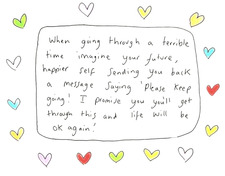 When going through a terrible
time imagine your future,
happier self sending you back
a message saying 'Please keep
going! I promise you you'll get
through this and life will be
ok again.'